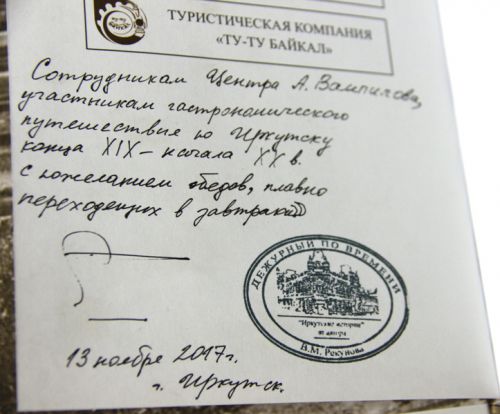 ТУРИСТИЧЕСКАЯ КОМПАНИЯ
«ТУ-ТУ БАЙКАЛ»
Сотрудникам Центра А. Вампилова,
участникам гастрономического
путешествия по Иркутску
конца XIX – начала XX в.
с пожеланием обедов, плавно
переходящих в завтраки))
ДЕЖУРНЫЙ ПО ВРЕМЕНИ
"Иркутские истории"
от автора
В.М. Рекунова
13 ноября 2017 г.
г. Иркутск.